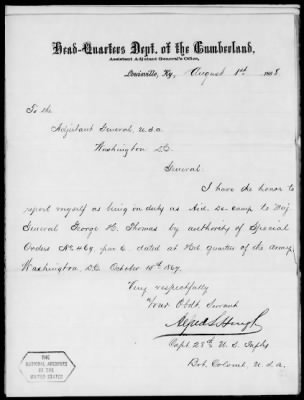 Head-Quarters Dept. of the Cumberland,
Assistant Adjutant General's Office,
Louisville, Ky, August 1st 1868
To the
Adjutant General, U.S.a.
Washington D.C.
General.
I have the honor to
report myself as being on duty as Aid-De-camp to Maj
General George H. Thomas by authority of Special
Orders No. 469, par 6. dated at Hd. Quarters of the army
Washington, D.C. October 18th 1867.
Very respectfully
Your Obdt. Servant
Alfred L. Hough
Capt. 27th U.S. Infty
Bvt. Colonel, U.S.a.
THE
NATIONAL ARCHIVES
OF THE
UNITED STATES